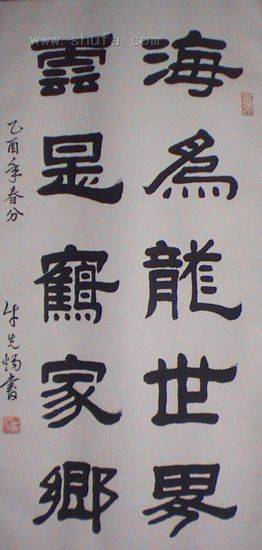 海為龍世界
雲是鶴家鄉
乙酉年春分
朱先炀書
www.shufa.com